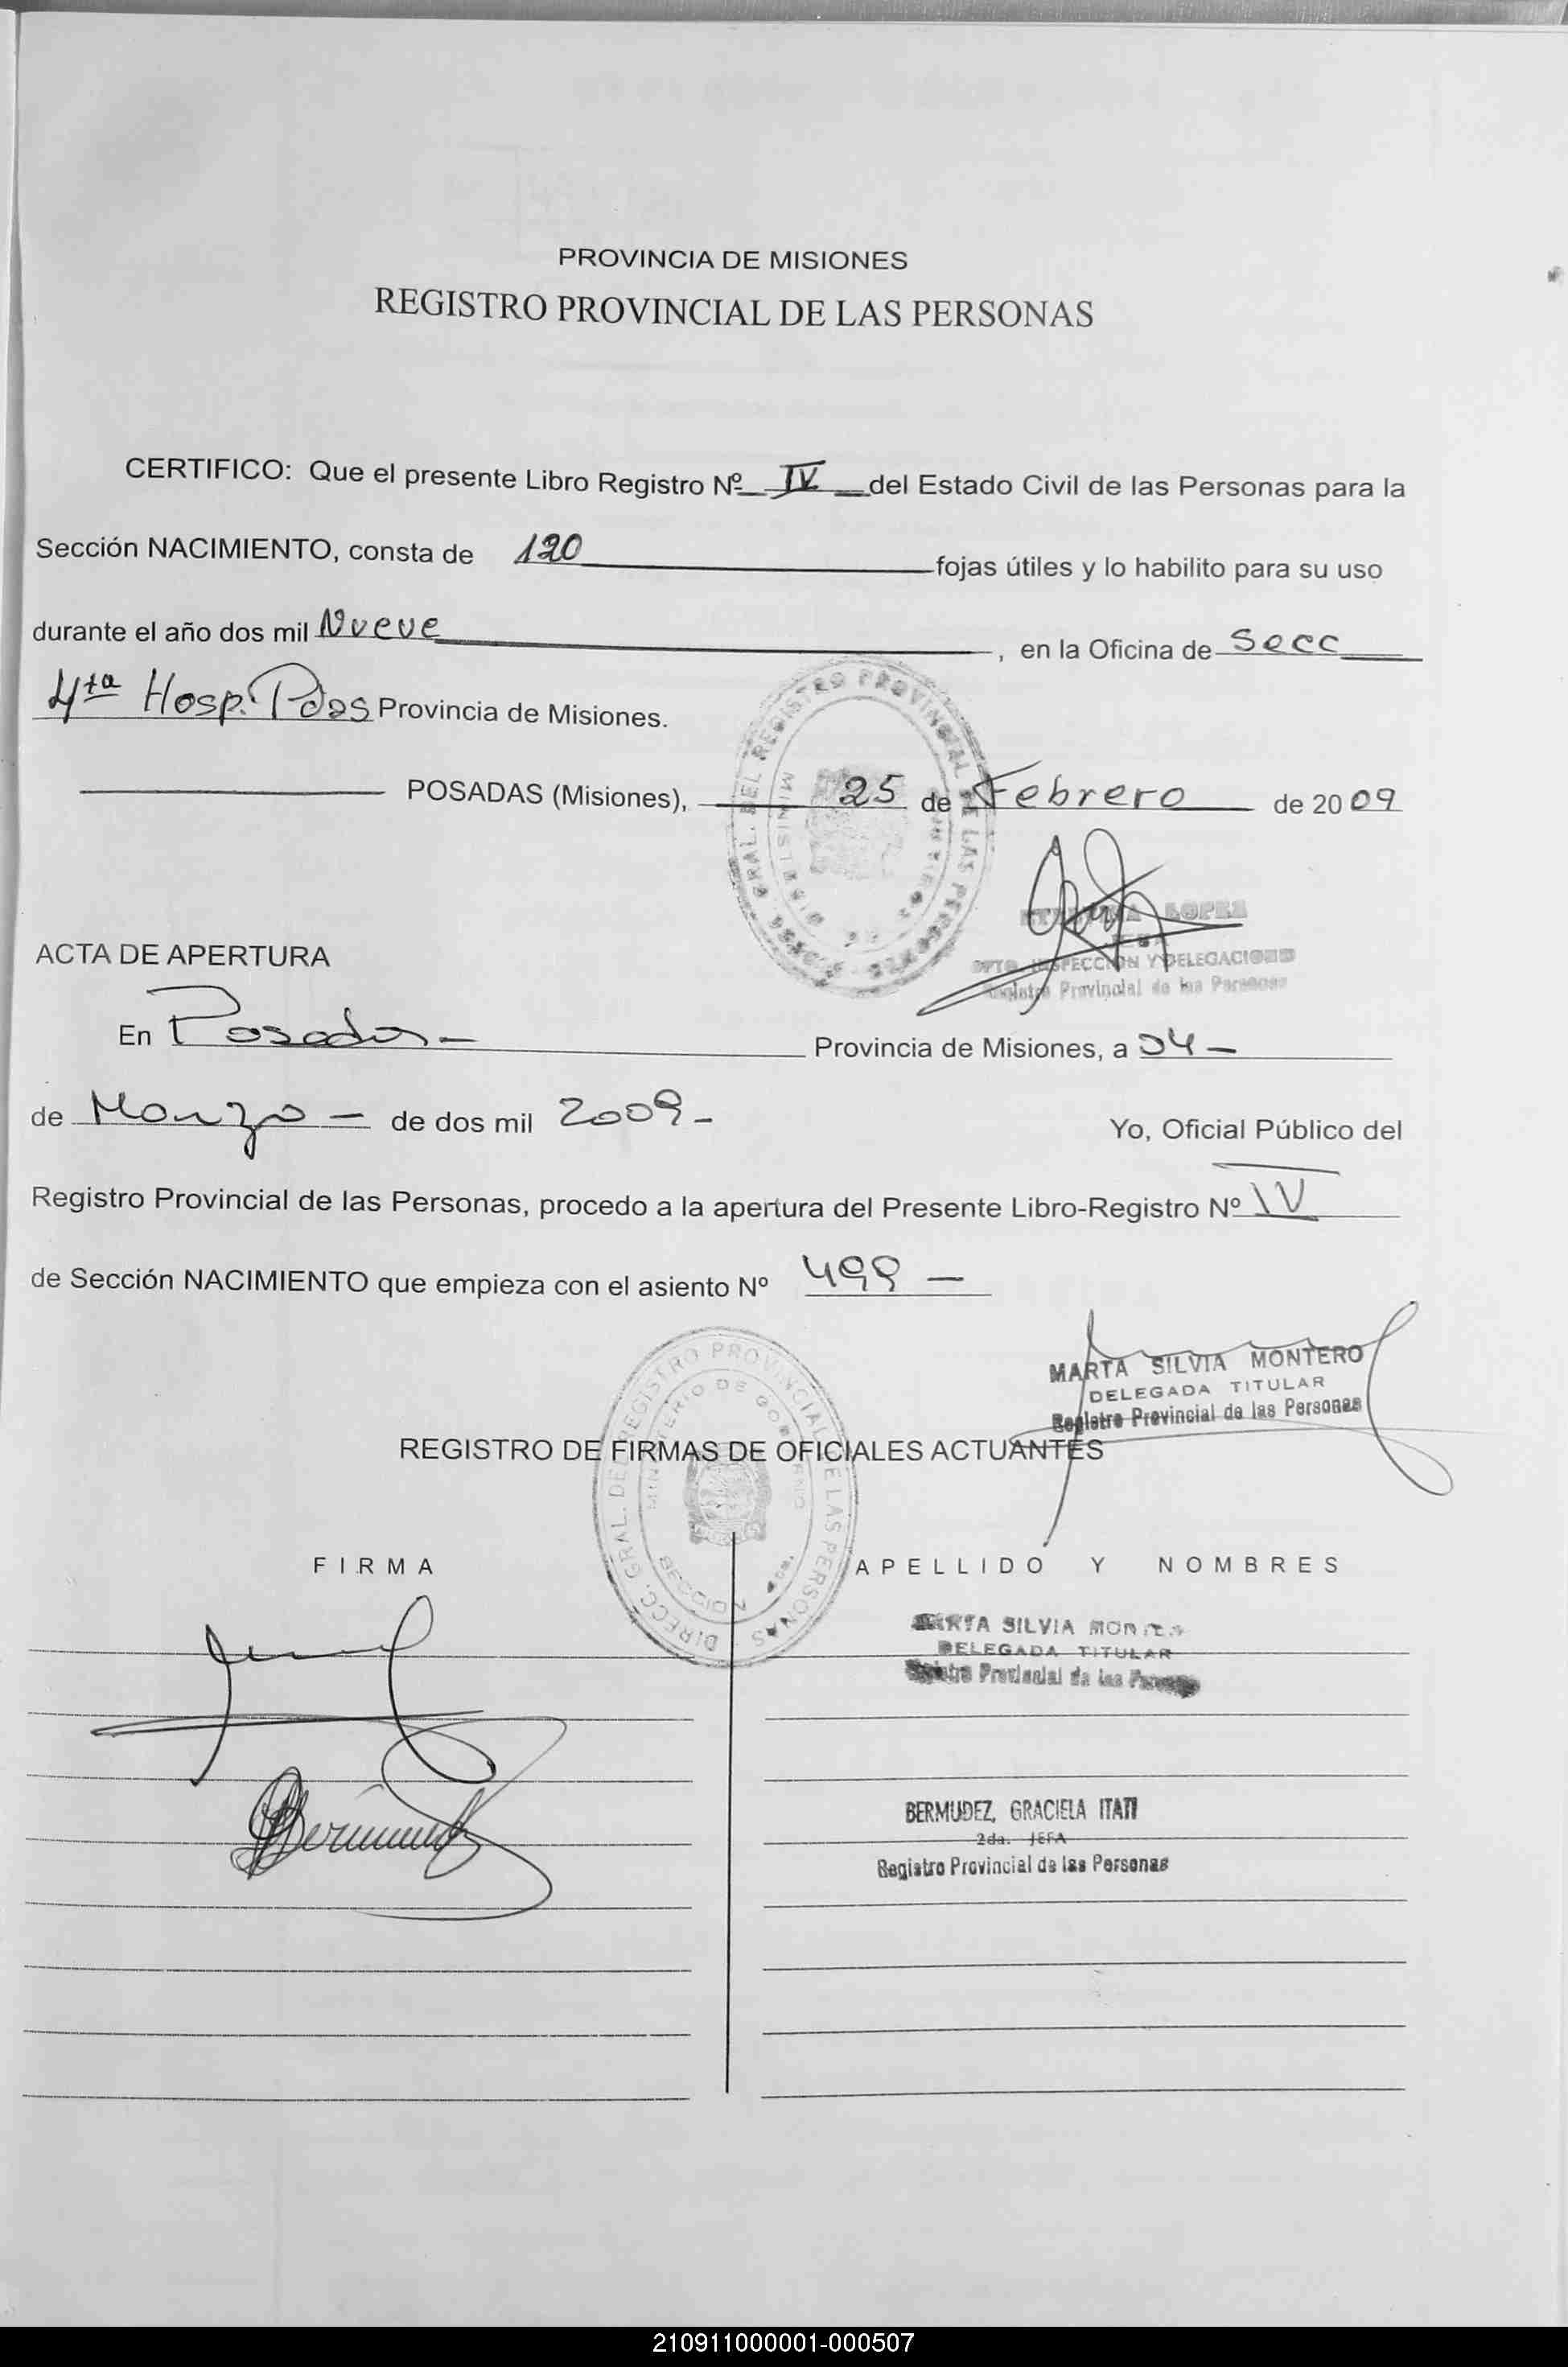 PROVINCIA DE MISIONES
REGISTRO PROVINCIAL DE LAS PERSONAS
CERTIFICO: Que el presente Libro Registro Nº IV del Estado Civil de las Personas para la
Sección NACIMIENTO, consta de 120 fojas útiles y lo habilito para su uso
durante el año dos mil Nueve, en la Oficina de Secc
4ta Hosp. Pdas Provincia de Misiones.
POSADAS (Misiones), 25 de Febrero de 2009
LOPEZ
JEFA
DPTO. INSPECCION Y DELEGACIONES
Registro Provincial de las Personas
ACTA DE APERTURA
En Posadas - Provincia de Misiones, a 04 -
de Marzo - de dos mil 2009 -
Yo, Oficial Público del
Registro Provincial de las Personas, procedo a la apertura del Presente Libro-Registro Nº IV
de Sección NACIMIENTO que empieza con el asiento Nº 499 -
MARTA SILVIA MONTERO
DELEGADA TITULAR
Registro Provincial de las Personas
DIRECC. GRAL. DEL REGISTRO PROVINCIAL DE LAS PERSONAS
MINISTERIO DE GOBIERNO
REGISTRO DE FIRMAS DE OFICIALES ACTUANTES
FIRMA
APELLIDO Y NOMBRES
MARTA SILVIA MONTERO
DELEGADA TITULAR
Registro Provincial de las Personas
BERMUDEZ, GRACIELA ITATI
2da. JEFA
Registro Provincial de las Personas
210911000001-000507